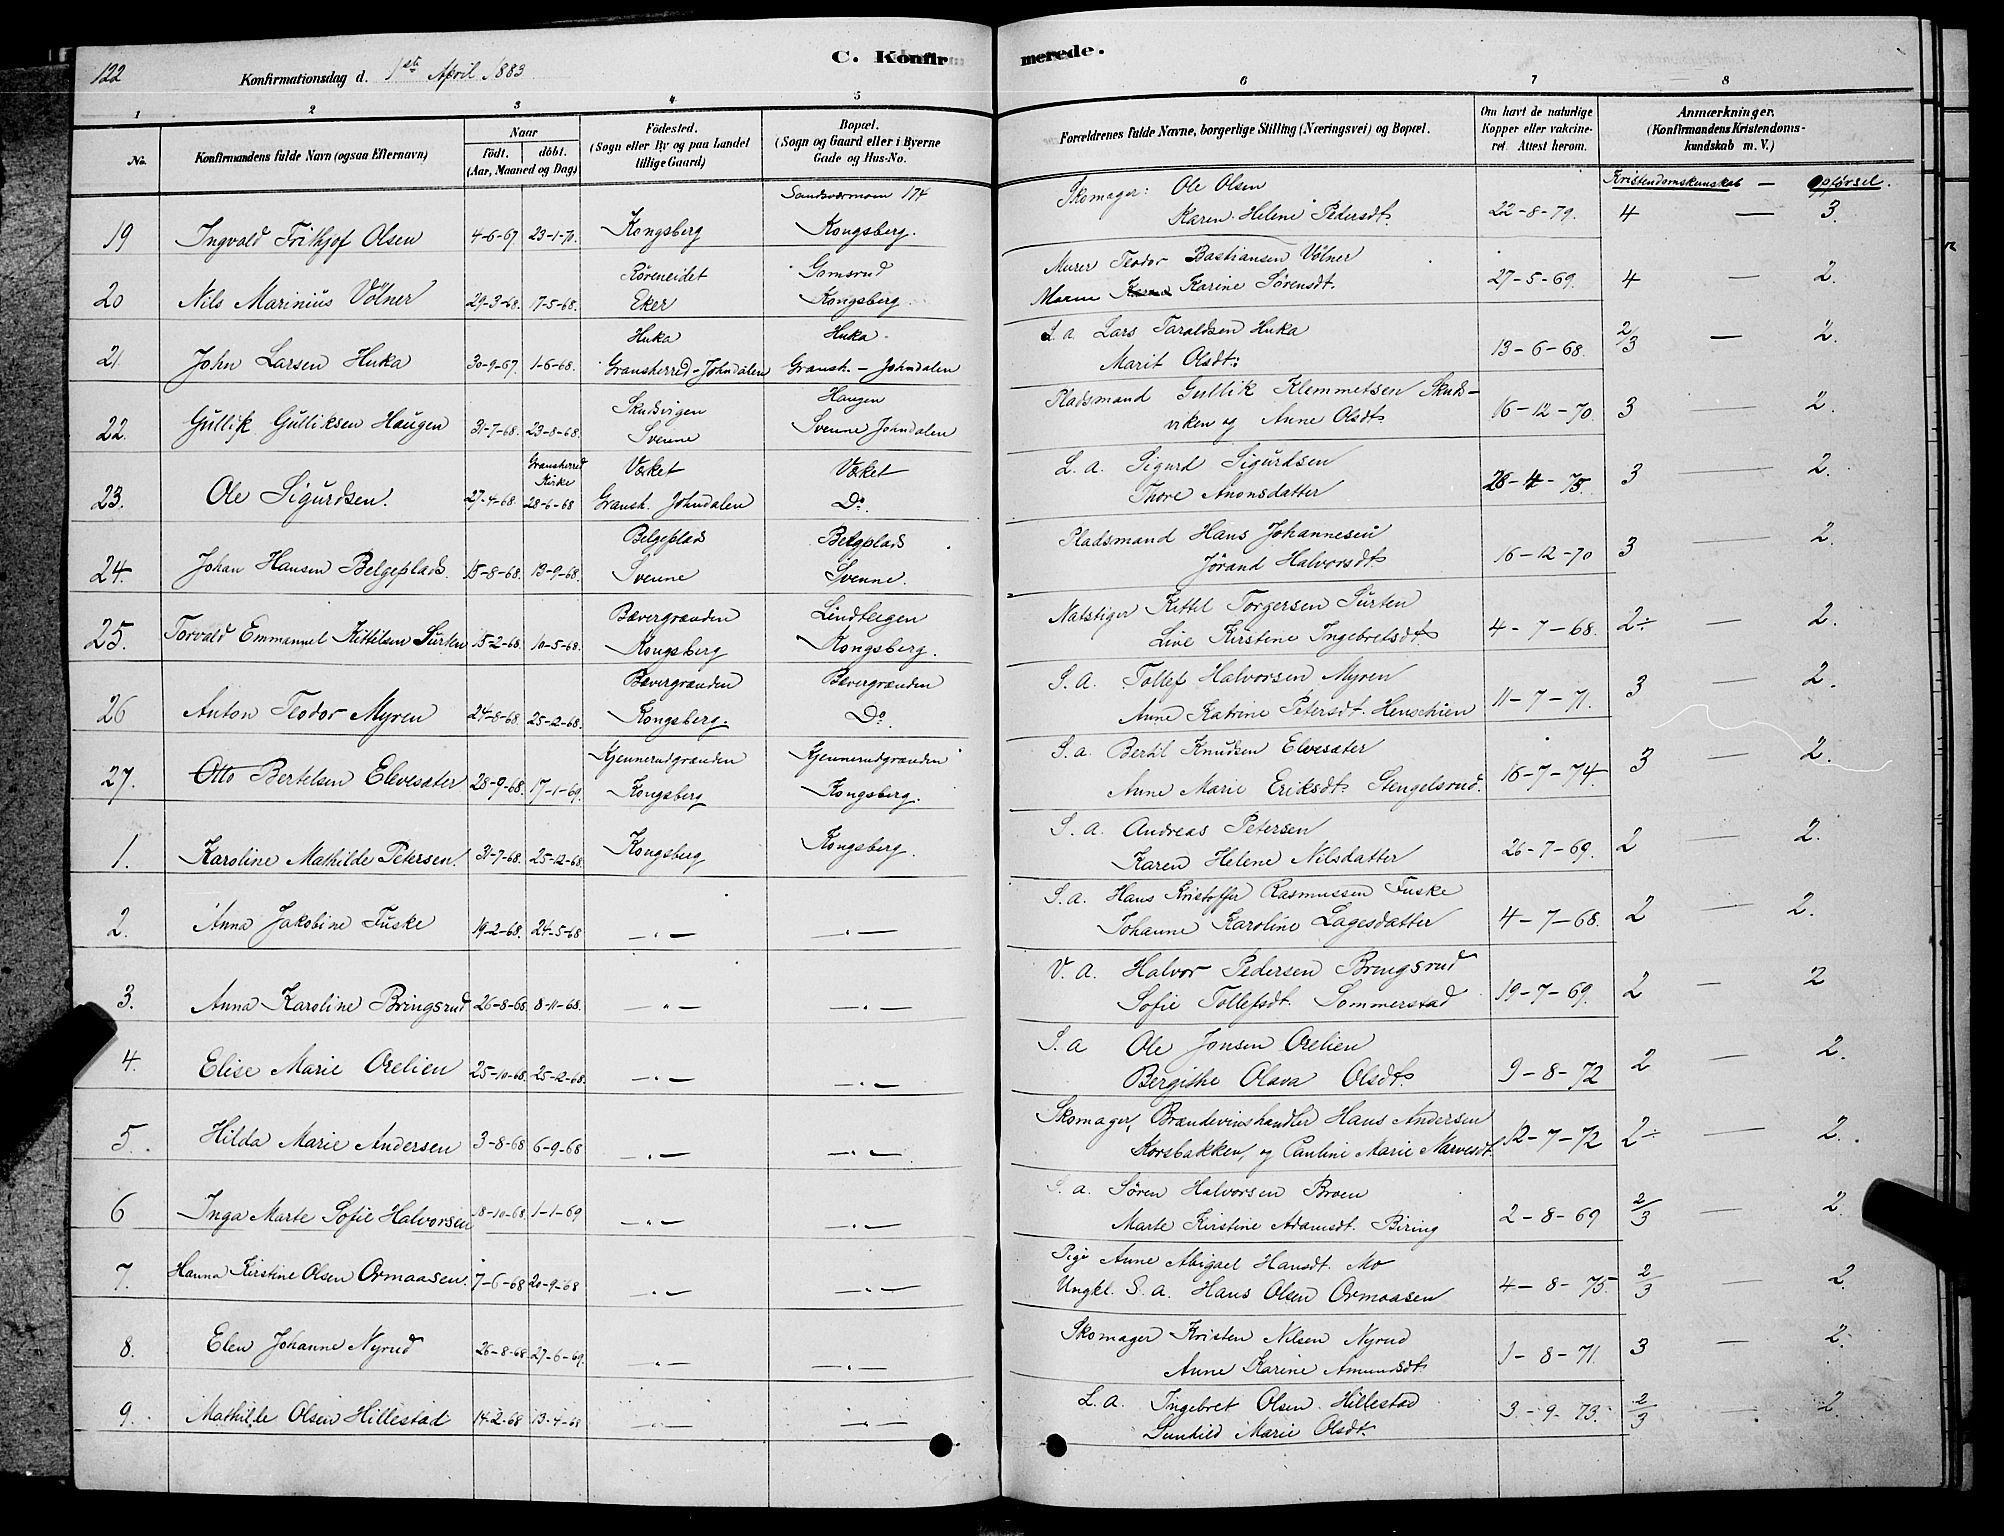 122
Konfirmationsdag d. 1ste April 1883
C. Konfirmerede.
1 2 3 4 5 6 7 8
No.
Konfirmandens fulde Navn (ogsaa Efternavn)
Naar
født. døbt.
(Aar, Maaned og Dag)
Fødested.
(Sogn eller By og paa Landet
tillige Gaard)
Bopæl.
(Sogn og Gaard eller i Byerne
Gade og Hus-No.
Forældrenes fulde Navne, borgerlige Stilling (Næringsvei) og Bopæl.
Om havt de naturlige
Kopper eller vakcine-
ret. Attest herom.
Anmærkninger.
(Konfirmandens Kristendoms-
kundskab m. V.)
Kristendomskunskab — Opførsel.
Sandsværmoen 174 Skomager: Ole Olsen
19 Ingvald Frithjof Olsen 4-6-67. 23-1-70. Kongsberg Kongsberg. Karen Helene Pedersdt. 22-8-79. 4 — 3.
Røreneidet Gomsrud Murer Teodor Bastiansen Völner
20 Nils Marinius Völner 29-3-68. 17-5-68. Eker Kongsberg Maren Karine Sørensdt. 27-5-69. 4 — 2.
Huka Huka S. a. Lars Taraldsen Huka
21. John Larsen Huka 30-9-67. 1-6-68. Gransherred-Johndalen Gransh.-Johndalen Marit Olsdt. 13-6-68. 2/3 — 2.
Skudsvigen Haugen Pladsmand Gullik Klemmetsen Skuds-
22. Gullik Gulliksen Haugen 31-7-68. 23-8-68. Svenne Svenne Johndalen viken og Anne Olsdt. 16-12-70. 3 — 2.
Gransherred Kirke Væket Væket L. a. Sigurd Sigurdsen
23. Ole Sigurdsen. 27-4-68. 28-6-68 Gransh. Johndalen Do. Thore Anonsdatter 28-4-75. 3 — 2.
Belgeplads Belgplads Pladsmand Hans Johannesen
24. Johan Hansen Belgeplads. 15-8-68. 13-9-68. Svenne Svenne. Jørand Halvorsdt. 16-12-70 3 — 2.
Bævergrænden Lindteigen Natstiger Kittil Torgersen Surten
25. Torvald Emmanuel Kittilsen Surten 15-2-68. 10-5-68. Kongsberg Kongsberg. Live Kirstine Ingebretsdt. 4-7-68. 2÷ — 2.
Bævergrænden Bævergrænden S. a. Tollef Halvorsen Myren
26 Anton Teodor Myren 24-8-68. 25-12-68. Kongsberg. Do. Anne Katrine Petersdt. Henschien 11-7-71. 3 — 2.
Kjennerudgrænden Kjennerudgrænden S. a. Bertil Knudsen Elvesæter
27. Otto Bertelsen Elevesæter 28-9-68. 17-1-69. Kongsberg Kongsberg. Anne Marie Eriksdt. Stengelsrud. 16-7-74. 3 — 2.
Kongsberg. S. a. Andreas Petersen
1. Karoline Mathilde Petersen 31-7-68. 25-12-68. Kongsberg Karen Helene Nilsdatter 26-7-69. 2 — 2.
S. a. Hans Kristoffer Rasmussen Fuske
2. Anna Jakobine Fuske 19-2-68. 24-5-68 —"— —"— Johanne Karoline Lagesdatter 4-7-68. 2 — 2.
V. a. Halvor Pedersen Bringsrud
3. Anna Karoline Bringsrud 26-8-68 8-11-68. —"— —"— Sofie Tollefsdt. Sommerstad 19-7-69. 2 — 2
S. a Ole Jonsen Orelien
4. Elise Marie Orelien 25-10-68. 25-12-68. —"— —"— Bergithe Olava Olsdt. 9-8-72 2 — 2.
Skomager, Brændevinshandler Hans Andersen
5. Hilda Marie Andersen 3-8-68 6-9-68 —"— —"— Korsbakken, og Pauline Marie Narvesdt. 12-7-72 2÷ — 2.
S. a. Søren Halvorsen Broen
6 Inga Marte Sofie Halvorsen 18-10-68. 1-1-69 —"— —"— Marte Kirstine Adamsdt. Biring 2-8-69 2/3 — 2.
Pige Anne Abigael Hansdt. Mo
7. Hanna Kirstine Olsen Ormaasen. 7-6-68 20-9-68 —"— —"— Ungkl. S. a. Hans Olsen Ormaasen 4-8-75. 2/3 — 2.
Skomager Kristen Nilsen Nyrud
8. Elen Johanne Nyrud 26-8-68 27-6-69. —"— —"— Anne Karine Amundsdt. 1-8-71. 3 — 2.
L. a. Ingebret Olsen Hillestad
9. Mathilde Olsen Hillestad 14-2-68 13-4-68 —"— —"— Gunhild Marie Olsdt. 3-9-73. 2/3 — 2.